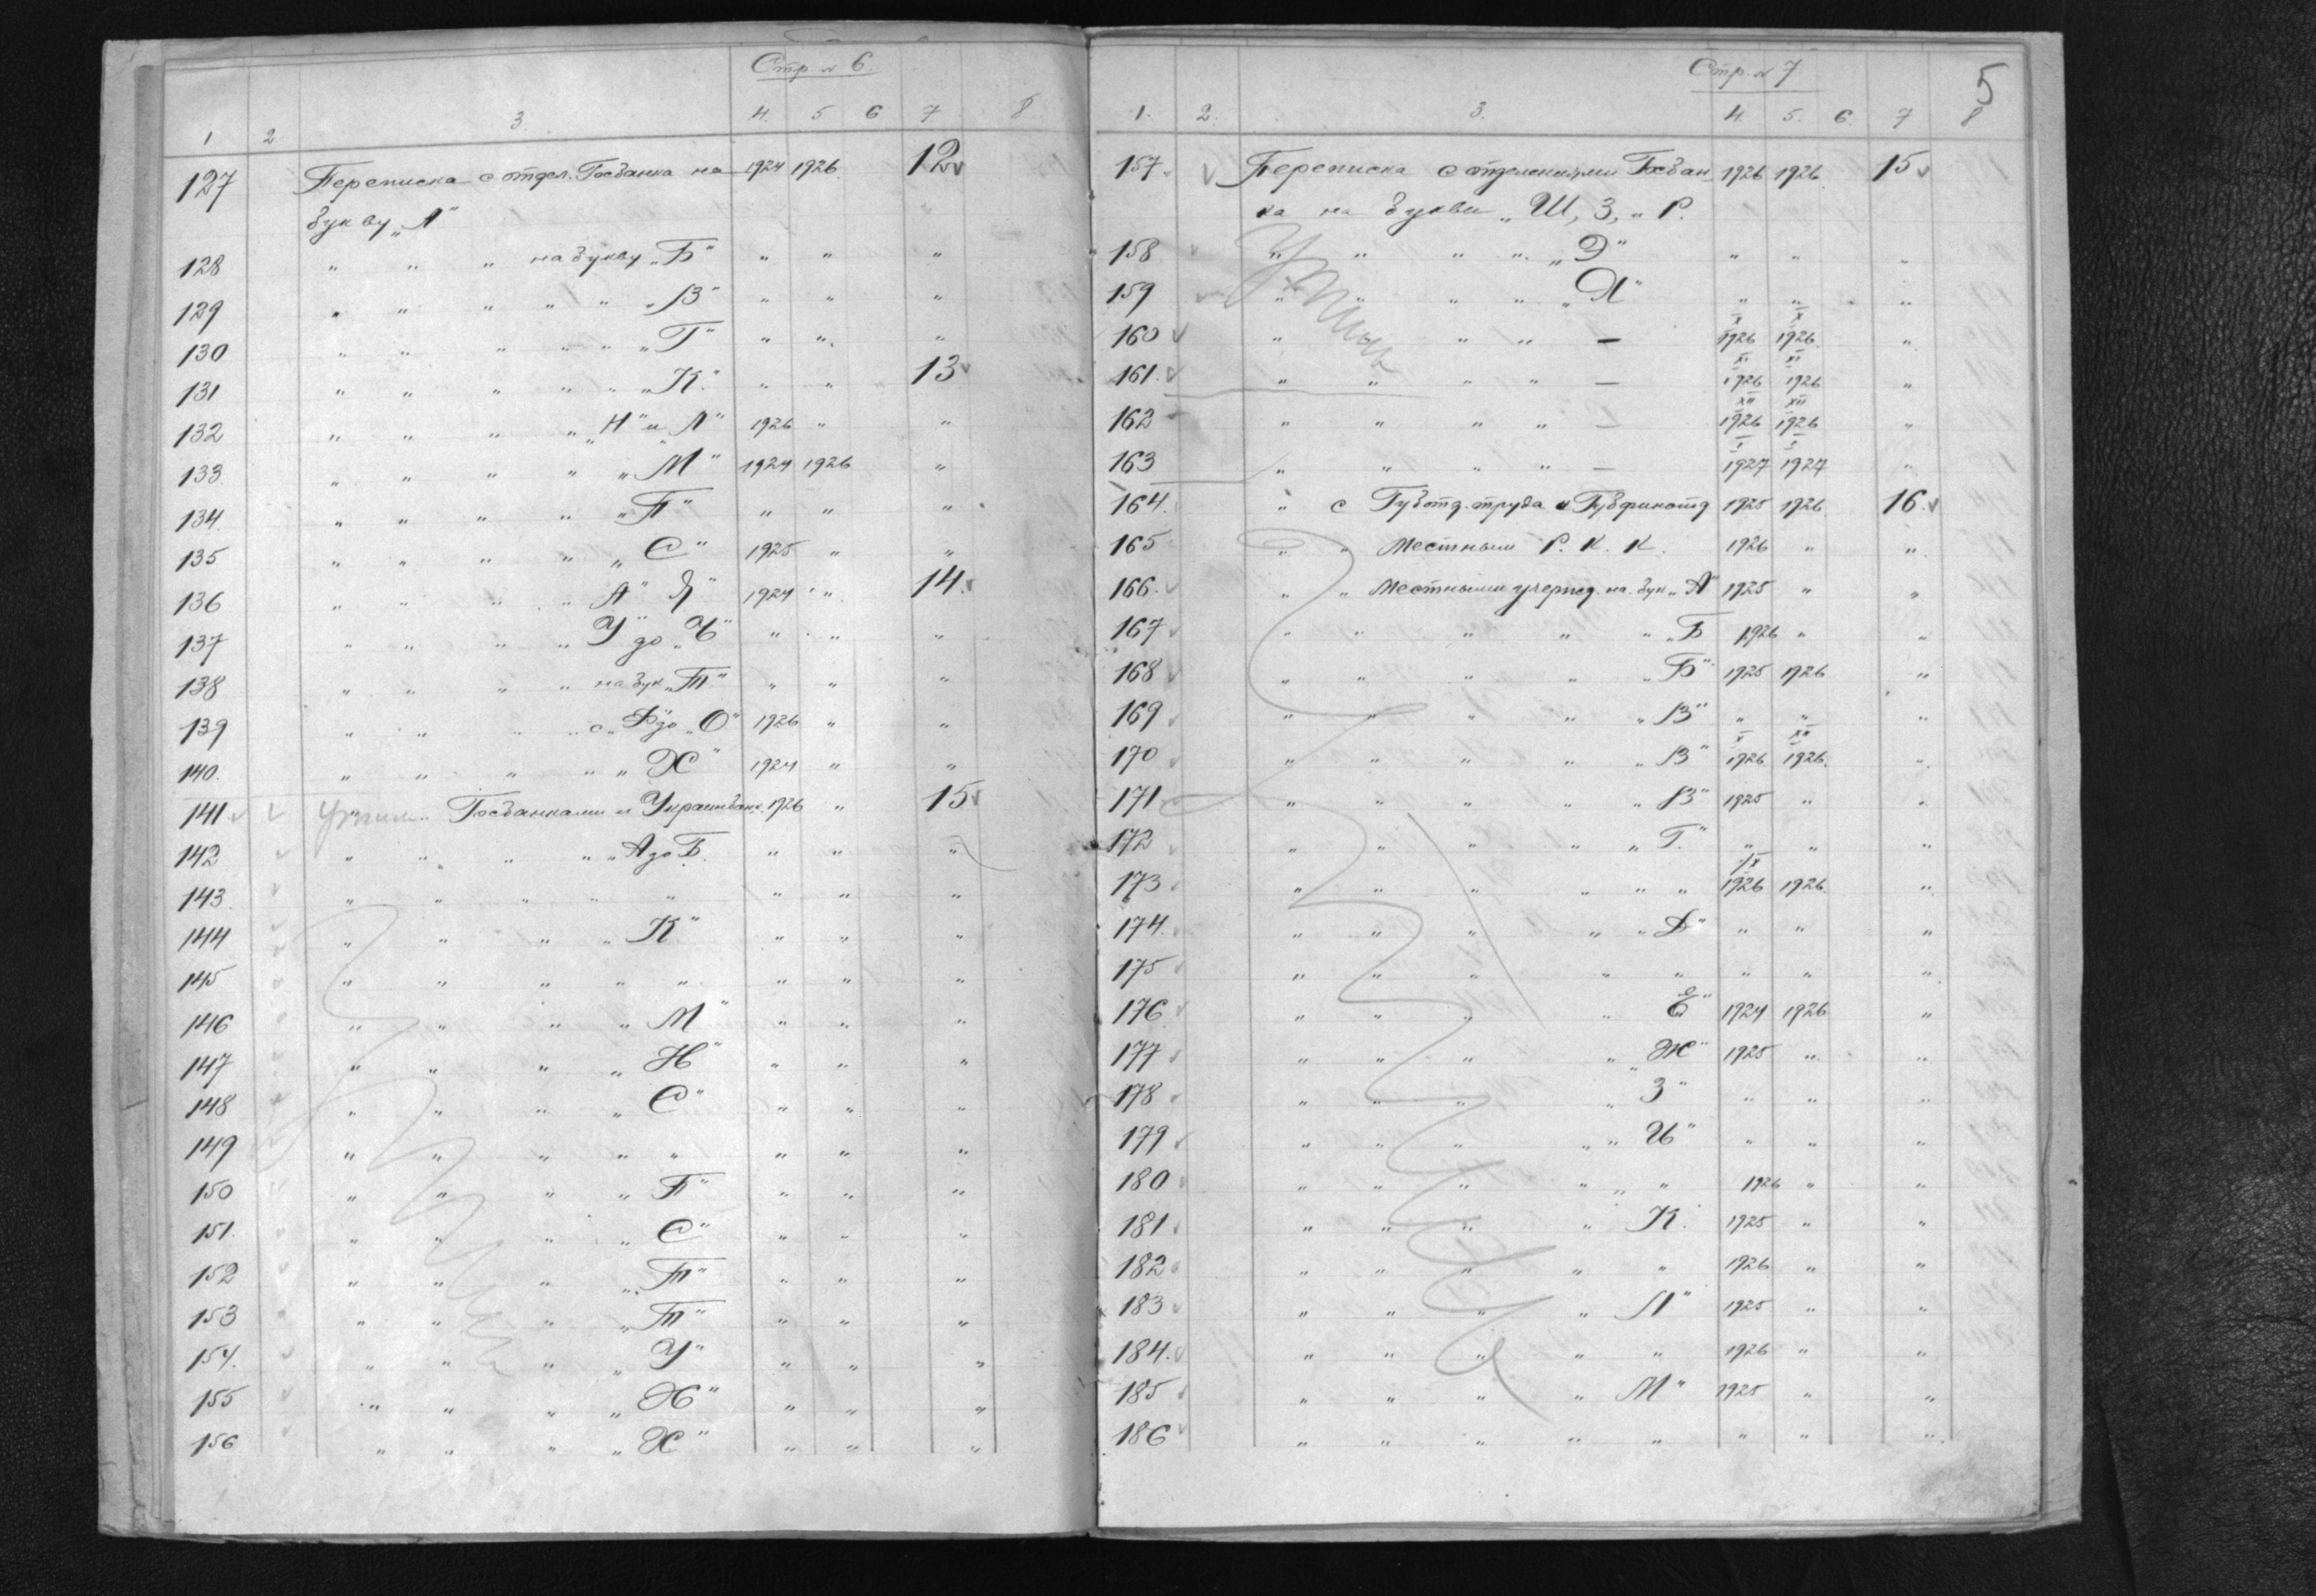 Стр. № 6.
1 2 3. 4. 5 6 7 8
127 Переписка с отдел. Госбанка на 1924 1926. 12
букву „Л“
128 „ „ „ на букву „Б“ „ „ „
129 „ „ „ „ „ „В“ „ „ „
130 „ „ „ „ „ „Г“ „ „ „
131 „ „ „ „ „ „К.“ „ „ 13
132 „ „ „ „ „Н“ и „Л“ 1926 „ „
133 „ „ „ „ „М“ 1924 1926 „
134. „ „ „ „ „П“ „ „ „
135 „ „ „ „ „С“ 1925 „ „
136 „ „ „ „ А“ Я“ 1924 „ 14.
137 „ „ „ „ У“ до „Ч“ „ „ „
138 „ „ „ „ на бук „Т“ „ „ „
139 „ „ „ „ с „ до „О“ 1926 „ „
140. „ „ „ „ „Х“ 1924 „ „
141. „ „ Госбанками и Украинбанк. 1926 „ 15
142 „ „ „ „ „А до Б. „ „ „
143. „ „ „ „ „ „ „ „
144 „ „ „ „ К“ „ „ „
145 „ „ „ „ „ „ „ „
146 „ „ „ „ М“ „ „ „
147 „ „ „ „ Н“ „ „ „
148 „ „ „ „ С“ „ „ „
149 „ „ „ „ „ „ „ „
150 „ „ „ „ П“ „ „ „
151. „ „ „ „ С“ „ „ „
152 „ „ „ „ Т“ „ „ „
153 „ „ „ „ Т“ „ „ „
154. „ „ „ „ У“ „ „ „
155 „ „ „ „ Х“ „ „ „
156 „ „ „ „ Х“ „ „ „
Стр. № 7
5
1. 2. 3. 4. 5. 6. 7 8
157. Переписка с отделениями Госбан- 1926 1926. 15
ка на буквы „Ш, З, „ Р.
158 „ „ „ „ „Э“ „ „ „
159 „ „ „ „ „Я“ „ „ „
X X
160 „ „ „ „ — 1926 1926. „
XI XI
161. „ „ „ „ — 1926 1926 „
XII XII
162 „ „ „ „ — 1926 1926 „
I I
163 „ „ „ „ — 1927 1927 „
164. „ с Губотд. труда и Губфинотд 1925 1926. 16.
165 „ „ Местным Р. К. К. 1926 „ „
166. „ „ Местными учережд. на бук „А“ 1925 „ „
167 „ „ „ „ „ „Б 1926 „ „
168 „ „ „ „ „Б“ 1925 1926 „
169 „ „ „ „ „В“ „ „ „
X XII
170 „ „ „ „ „В“ 1926 1926. „
171 „ „ „ „ „В“ 1925 „ „
172 „ „ „ „ „Г.“ „ „ „
IX
173 „ „ „ „ „ „ 1926 1926. „
174. „ „ „ „ „Д“ „ „ „
175 „ „ „ „ „ „ „ „
176 „ „ „ „ Е“ 1924 1926 „
177 „ „ „ „ Ж“ 1925 „ „
178 „ „ „ „ З“ „ „ „
179 „ „ „ „ „ И“ „ „ „
180 „ „ „ „ „ „ 1926 „ „
181. „ „ „ „ К. 1925 „ „
182 „ „ „ „ „ 1926 „ „
183 „ „ „ „ Л“ 1925 „ „
184. „ „ „ „ „ 1926 „ „
185 „ „ „ „ М“ 1925 „ „
186 „ „ „ „ „ „ „ „